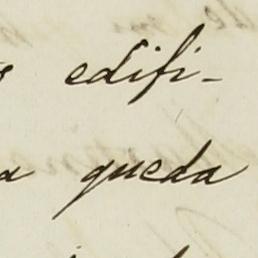 s edifi-
a queda